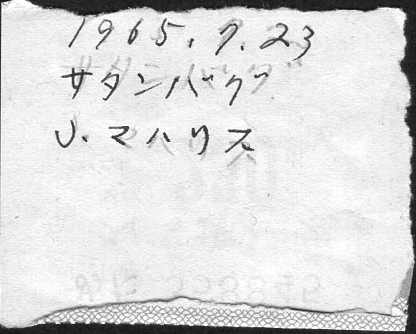 1965.7.23
サタンバグ
J.マハリス